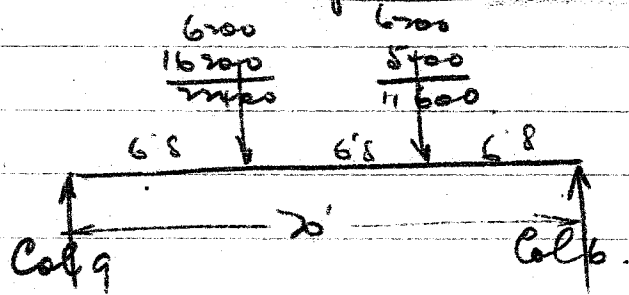 6200 6200
16200 5400
22400 11600
6'8 6'8 6'8
20'
Col 9 Col 6.